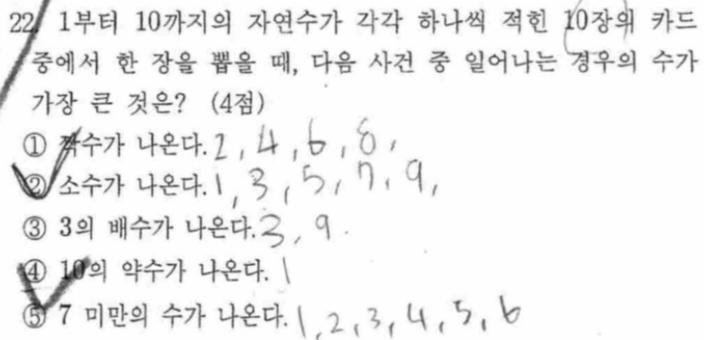 22. 1부터 10까지의 자연수가 각각 하나씩 적힌 10장의 카드
중에서 한 장을 뽑을 때, 다음 사건 중 일어나는 경우의 수가
가장 큰 것은? (4점)
① 짝수가 나온다. 2, 4, 6, 8,
② 소수가 나온다. 1, 3, 5, 7, 9,
③ 3의 배수가 나온다. 3, 9.
④ 10의 약수가 나온다. 1
⑤ 7 미만의 수가 나온다. 1, 2, 3, 4, 5, 6